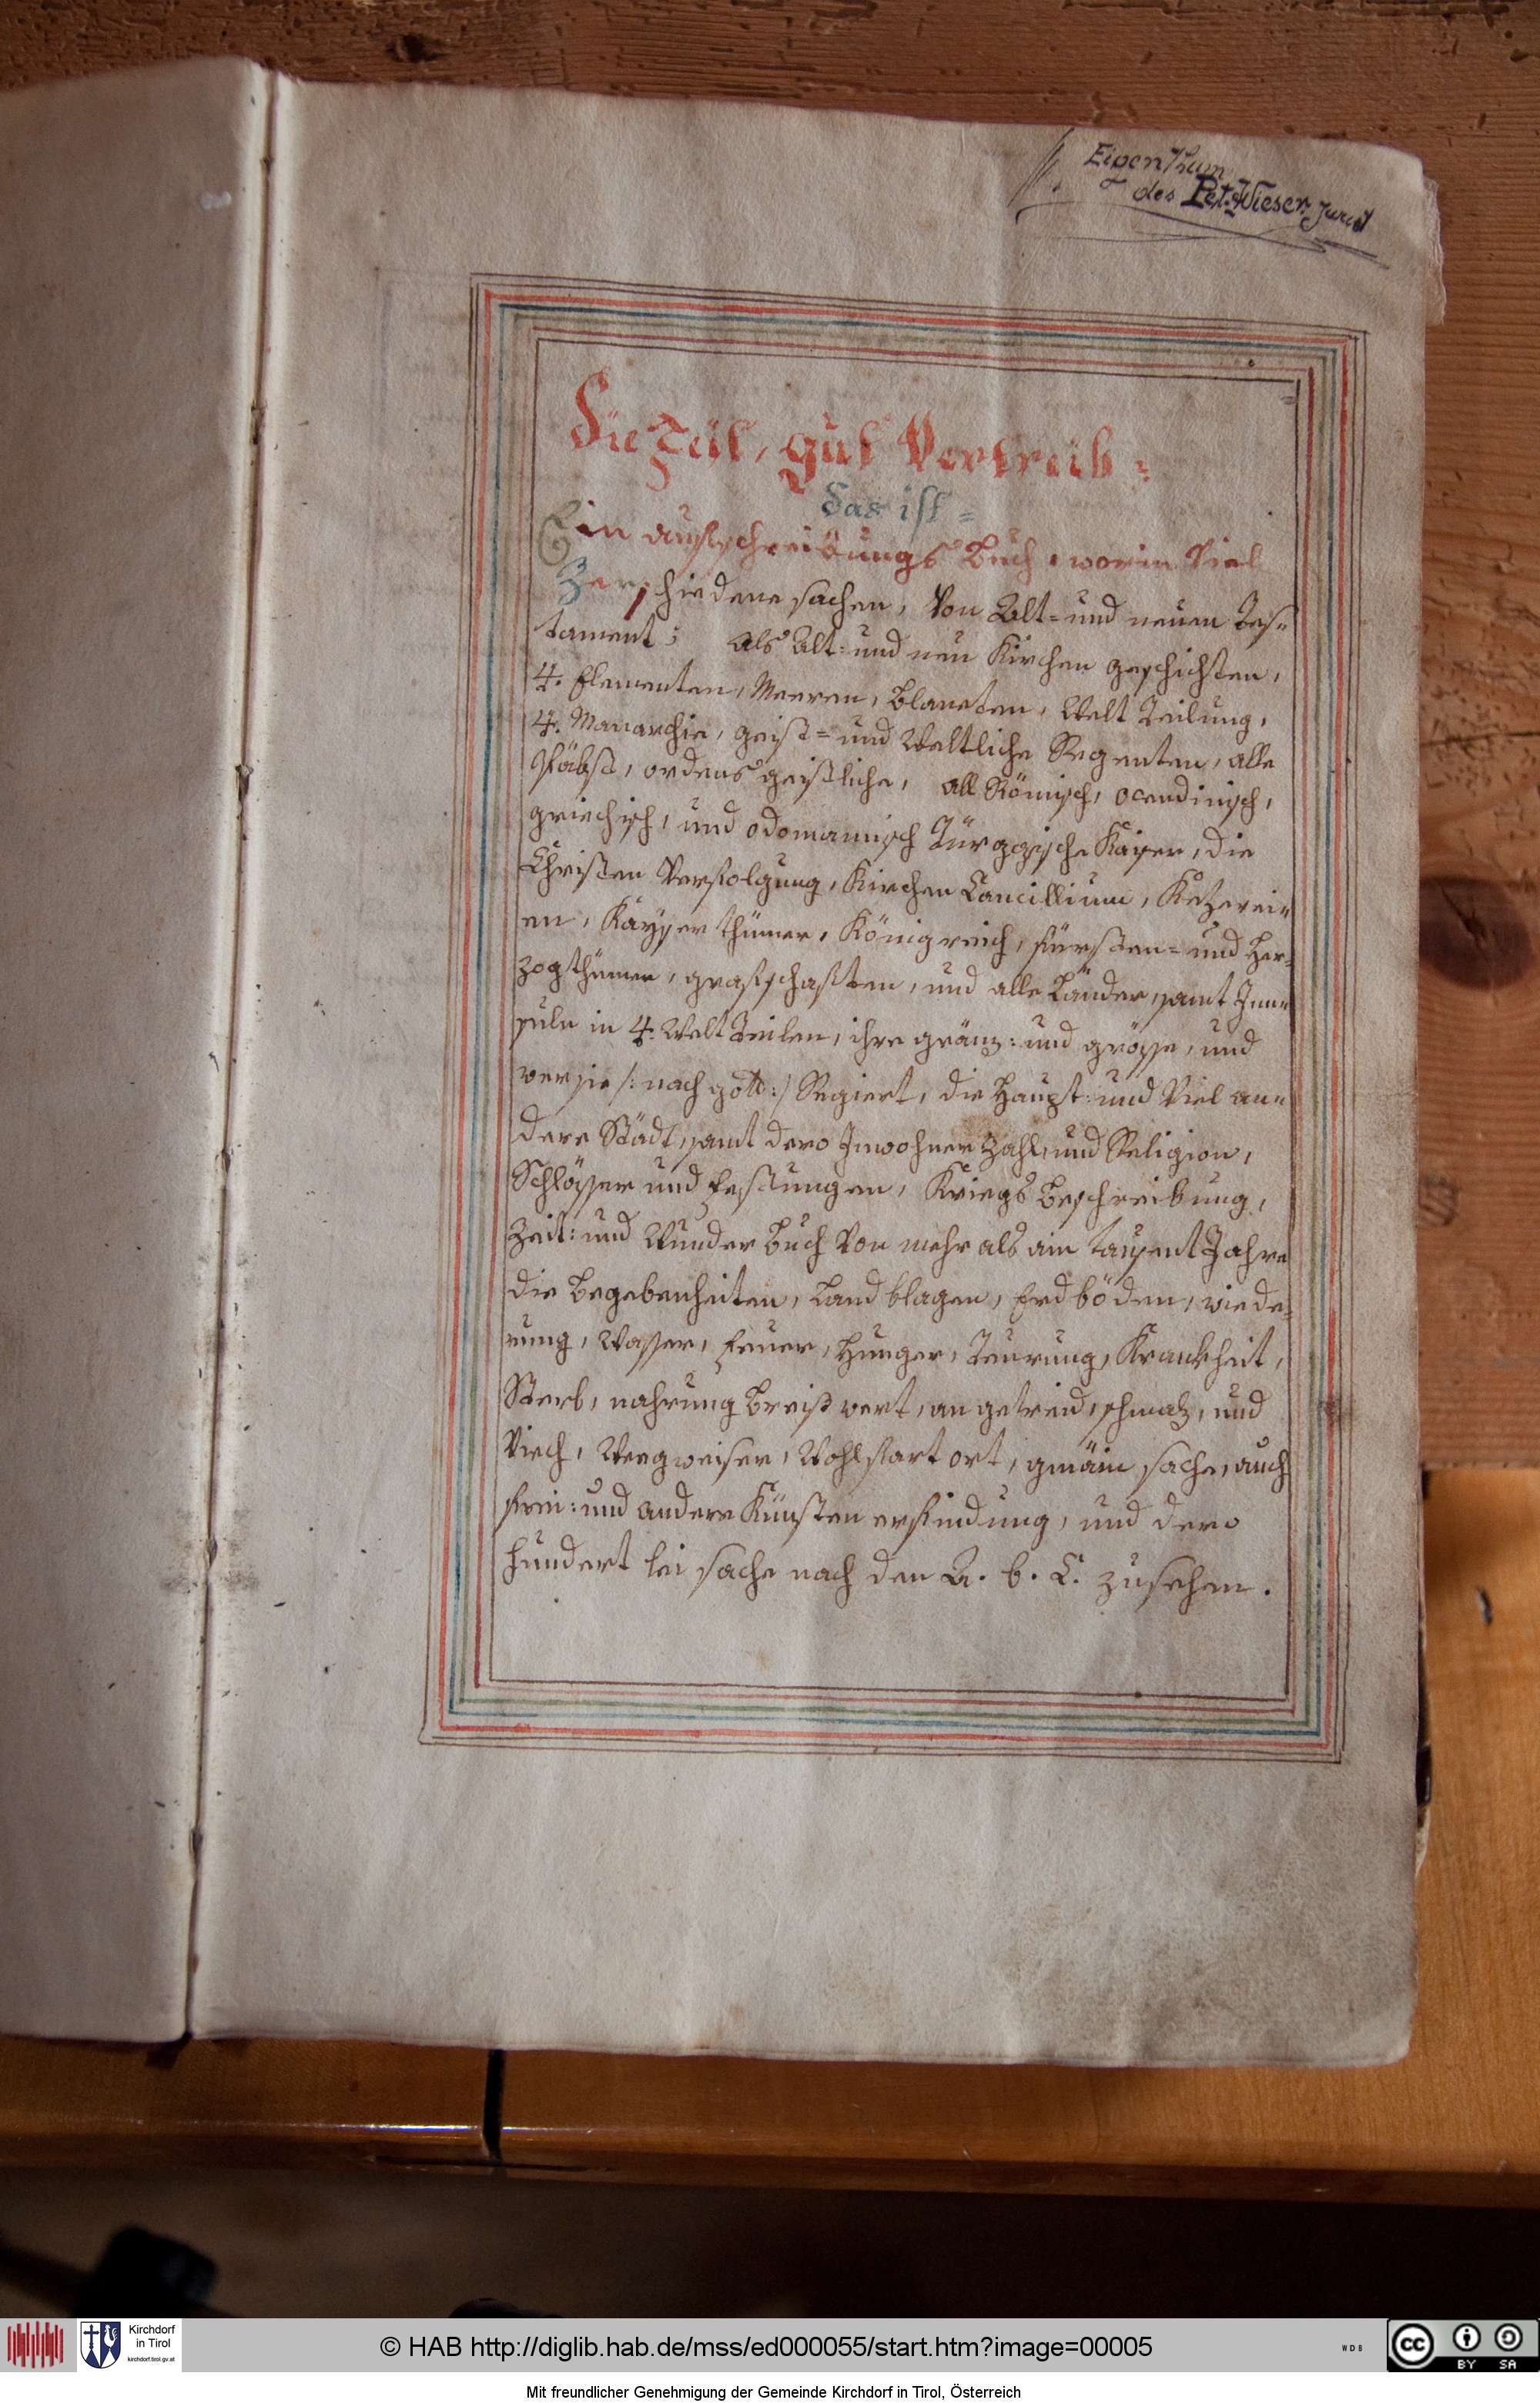 Eigenthum
des Pet. Wieser
Die Zeit, gut Vertreib:
Das ist =
Ein aufschreibungs Buch, worin Viel
Verschiedene sachen, Von Alt= und neuen Tes=
tament; als Alt: und neu Kirchen geschichten,
4. Elementen, Meeren, Blaneten, Welt Teilung,
4. Manarchie, geist= und Weltliche Regenten, alle
Päbst, ordens geistliche, all Römisch, ocendinisch,
griechisch, und odomannisch Türggische Kaiser, die
Christen Verfolgung, Kirchen Concillium, Ketzerei=
en, Kaysser thümer, Königreich, fürsten= und Her=
zogthümer, grafschaften, und alle Länder, samt Inn=
suln in 4. Welt Teilen, ihre gränz: und grösse, und
wer sie /: nach gott :/ Regiert, die Haupt: und Viel an=
dere Städt, samt dero Inwohner Zahl, und Religion,
Schlösser und Festungen, Kriegs Beschreibung,
Zeit: und Wunder Buch Von mehr als ein tausent Jahre
die Begebenheiten, Land blagen, Erd böden, wiede=
rung, Wasser, Feuer, Hunger, Teurung, Krankheit,
Sterb, nahrung Breiß wert, an getreid, schmalz, und
Viech, Weegweiser, Wohlfart ort, gmäin sache, auch
frei: und andere Künsten erfindung, und dero
hundert lei sache nach den A. b. C. zusehen.
Kirchdorf
in Tirol
kirchdorf.tirol.gv.at
© HAB http://diglib.hab.de/mss/ed000055/start.htm?image=00005
WDB
cc
BY SA
Mit freundlicher Genehmigung der Gemeinde Kirchdorf in Tirol, Österreich